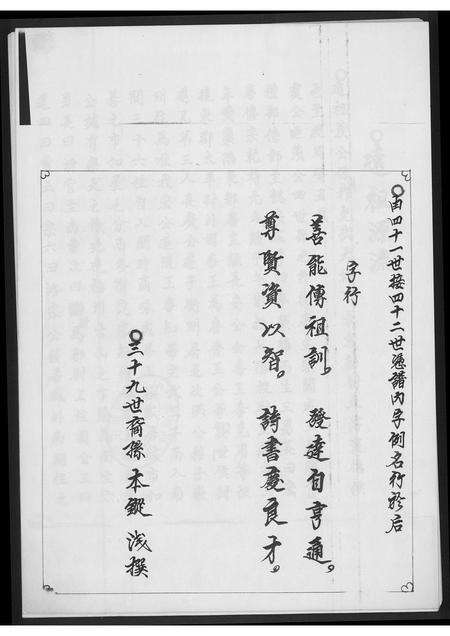 由四十一世接四十二世憑譜內字例名行於后
字行
善能傳祖訓。發達自亨通。
尊賢資以智。詩書慶良才。
三十九世裔孫本鏦淺撰